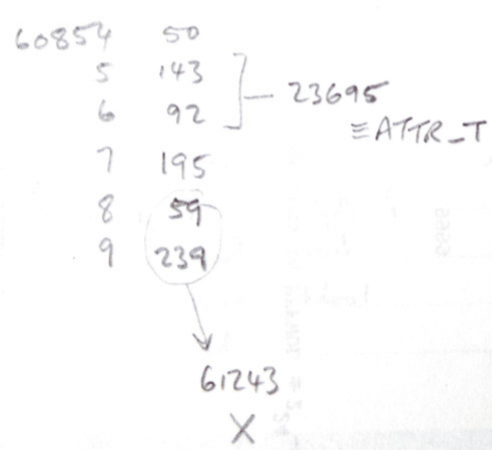 60854 50
5 143
6 92
23695
≡ATTR_T
7 195
8 59
9 239
61243
X